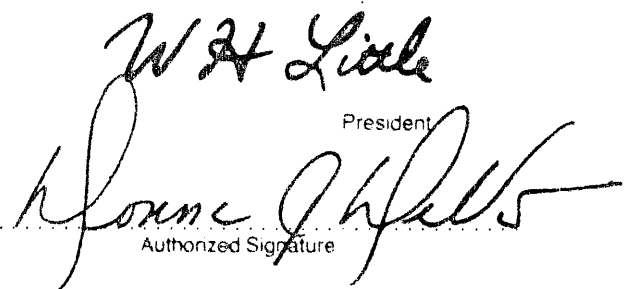 W H Little
President
Donna J
Authorized Signature